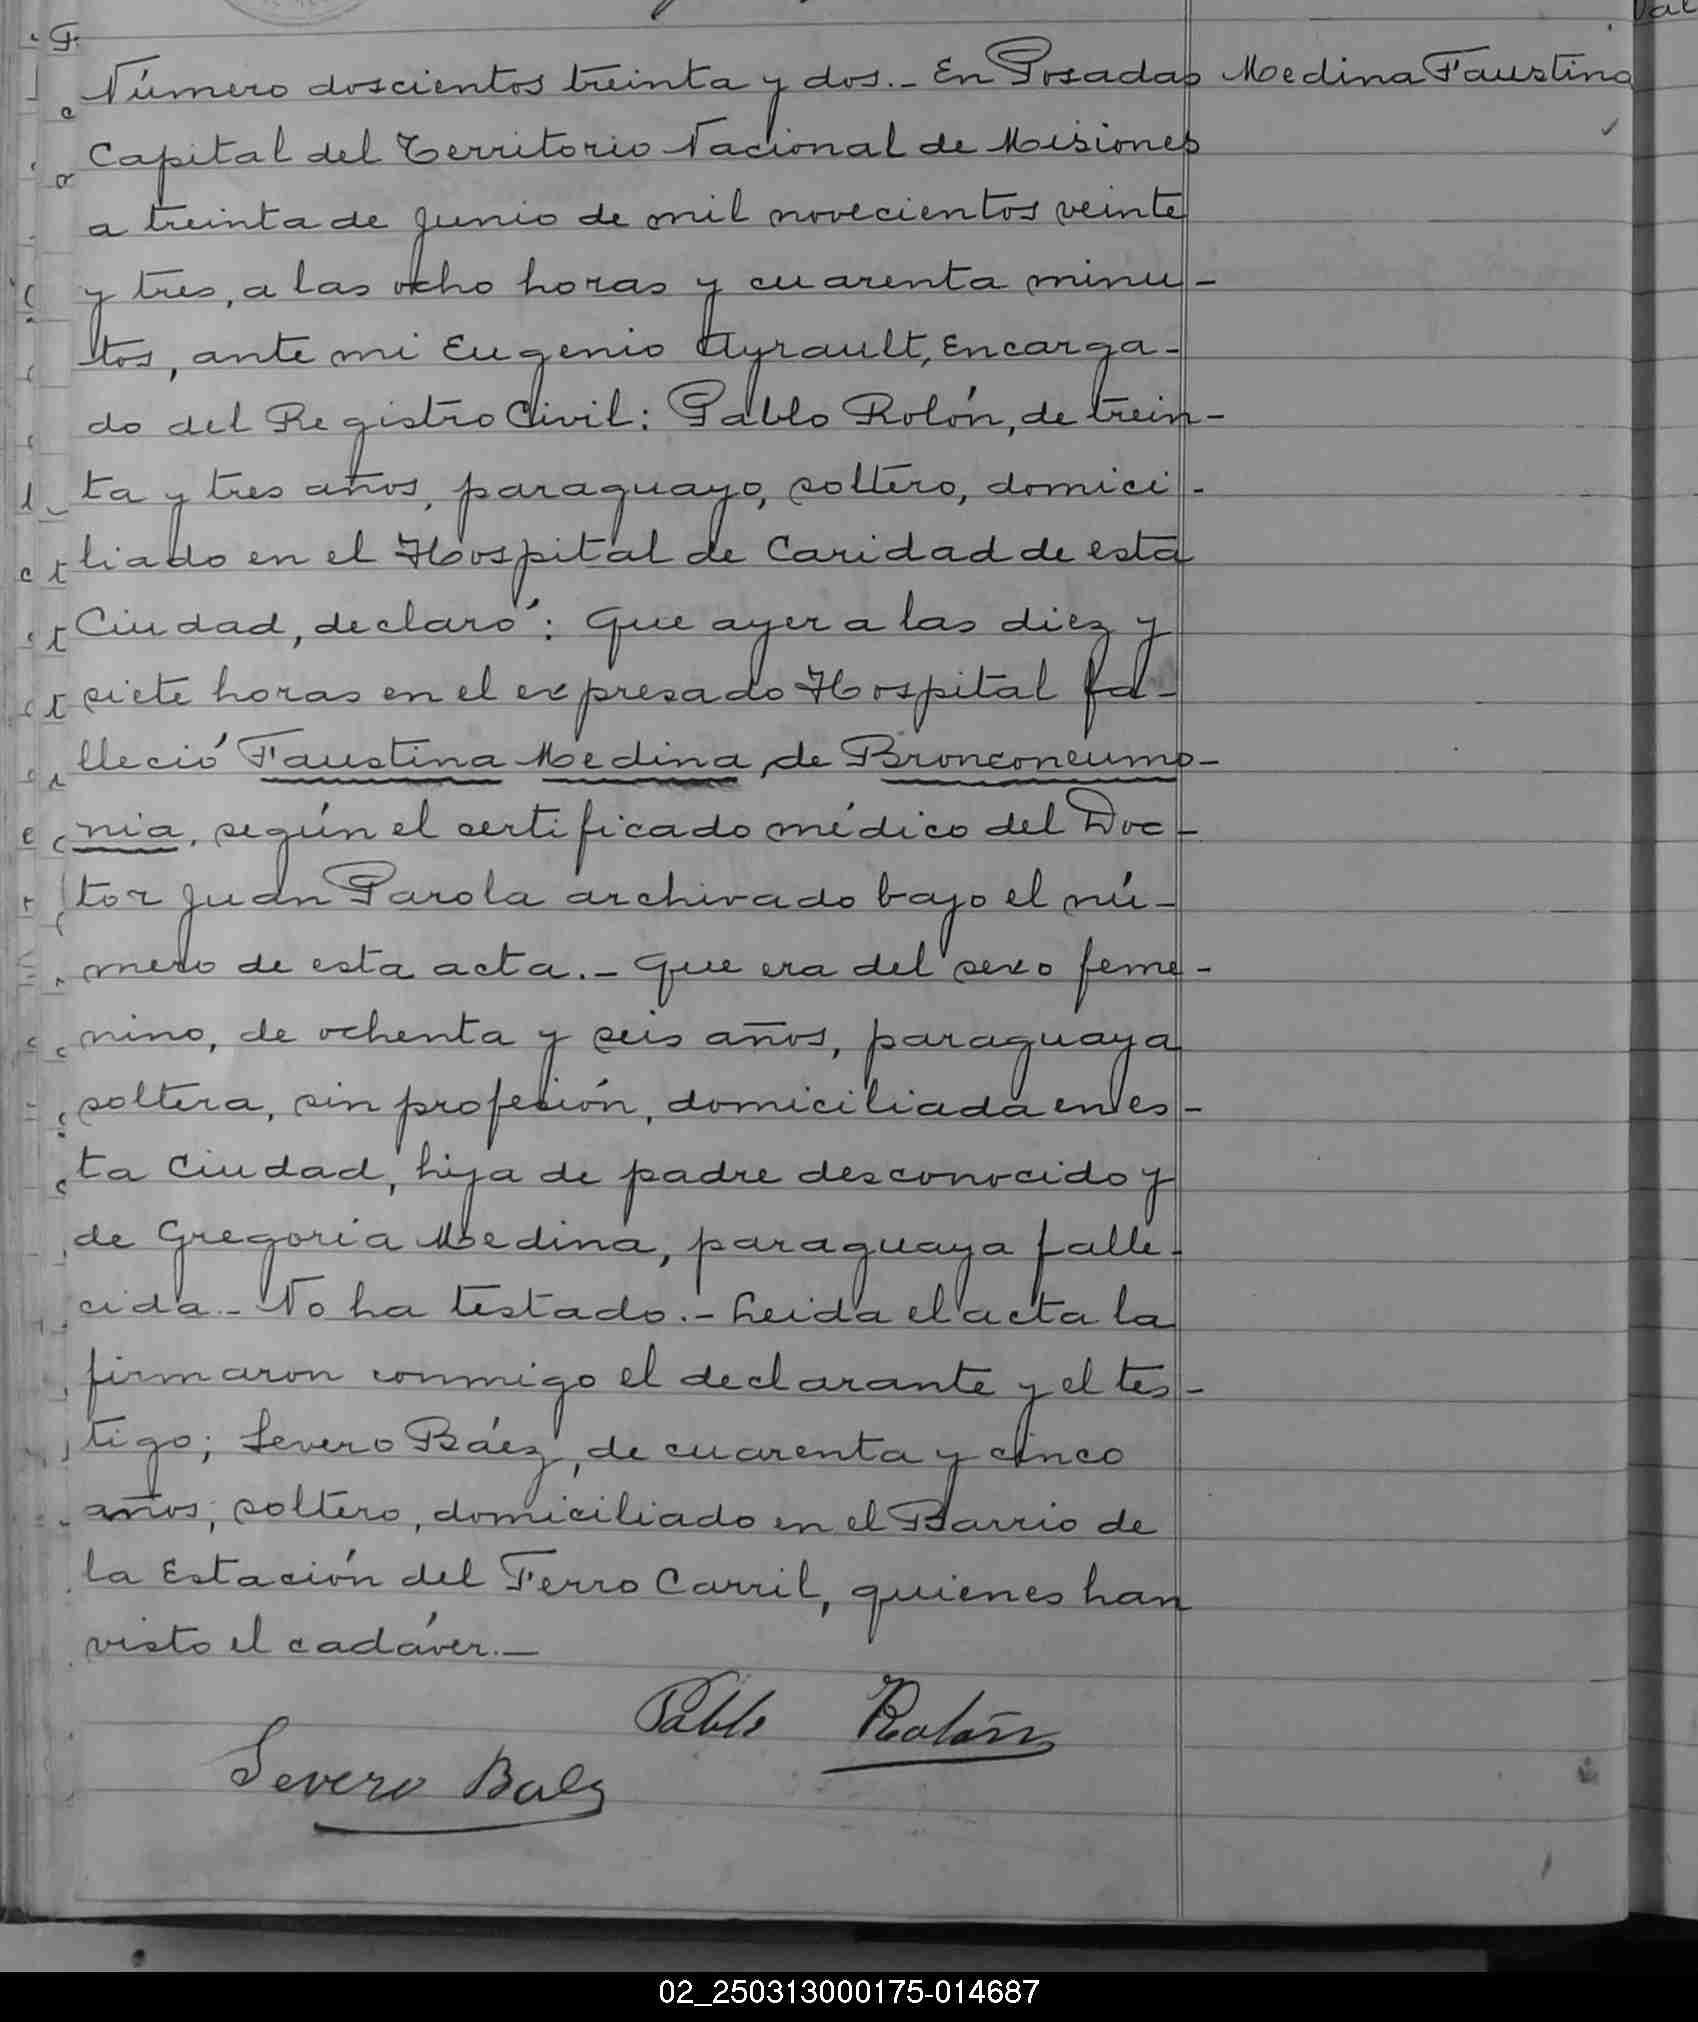 Número doscientos treinta y dos.- En Posadas Medina Faustina
Capital del Territorio Nacional de Misiones
a treinta de Junio de mil novecientos veinte
y tres, a las ocho horas y cuarenta minu-
tos, ante mi Eugenio Ayrault, Encarga-
do del Registro Civil: Pablo Rolón, de trein-
ta y tres años, paraguayo, soltero, domici-
liado en el Hospital de Caridad de esta
Ciudad, declaró: Que ayer a las diez y
siete horas en el expresado Hospital fa-
lleció Faustina Medina, de Bronconeumo-
nia, según el certificado médico del Doc-
tor Juan Parola archivado bajo el nú-
mero de esta acta.- Que era del sexo feme-
nino, de ochenta y seis años, paraguaya
soltera, sin profesión, domiciliada en es-
ta Ciudad, hija de padre desconocido y
de Gregoria Medina, paraguaya falle-
cida.- No ha testado.- Leida el acta la
firmaron conmigo el declarante y el tes-
tigo; Severo Báez, de cuarenta y cinco
años, soltero, domiciliado en el Barrio de
la Estación del Ferro Carril, quienes han
visto el cadáver.-
Pablo Rolón
Severo Baez
02_250313000175-014687